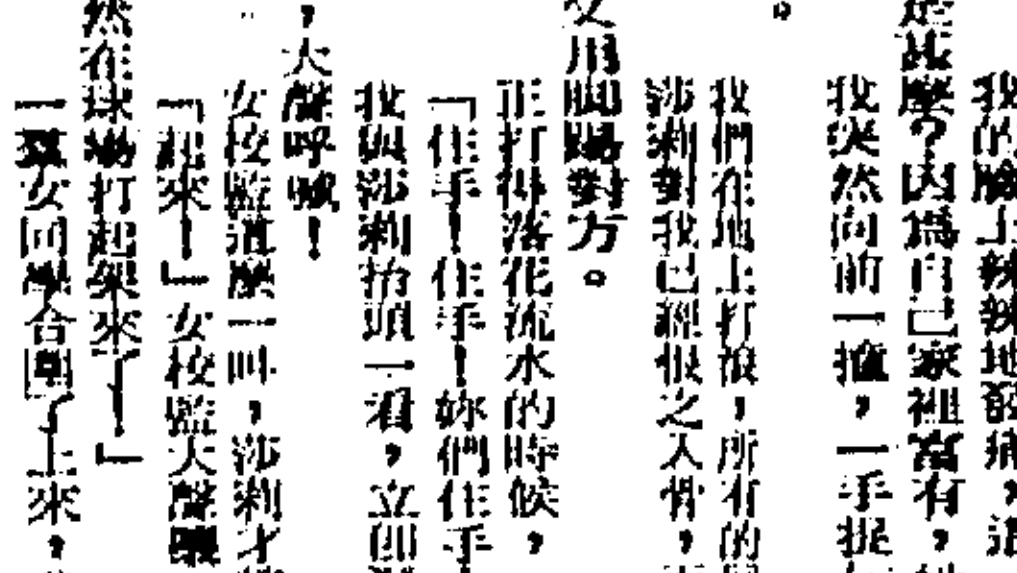 我的臉上辣辣地發痛，這
是甚麼？因為自己家裡富有，她
我突然向前一推，一手捉
。
我們在地上打滾，所有的
莎莉對我已經恨之入骨，
又用腳踢對方。
正打得落花流水的時候，
「住手！住手！妳們住手
我與莎莉抬頭一看，立即
，大聲呼喊！
女校監這麼一叫，莎莉才
「起來！」女校監大聲嚷
然在球場打起架來了！」
一羣女同學合圍了上來，